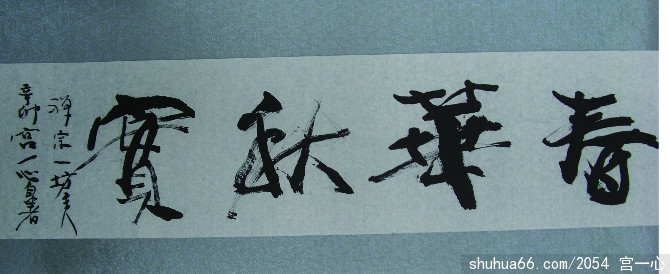 春華秋實
禪宗一坊主人
辛卯宮一心
shuhua66.com/2054 宫一心